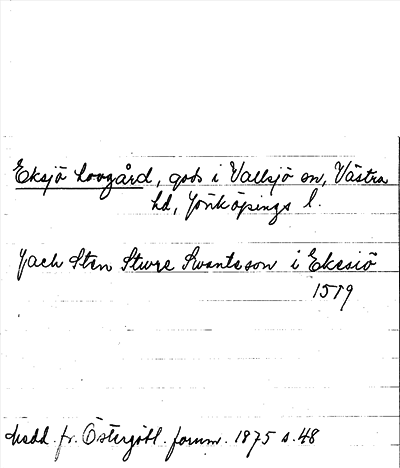 Eksjö hovgård, gods i Vallsjö sn, Västra
hd, Jönköpings l.
Jach Sten Sture Swantesson i Ekesiö
1519
Medd. fr. Östergötl. fornm. 1875 s. 48